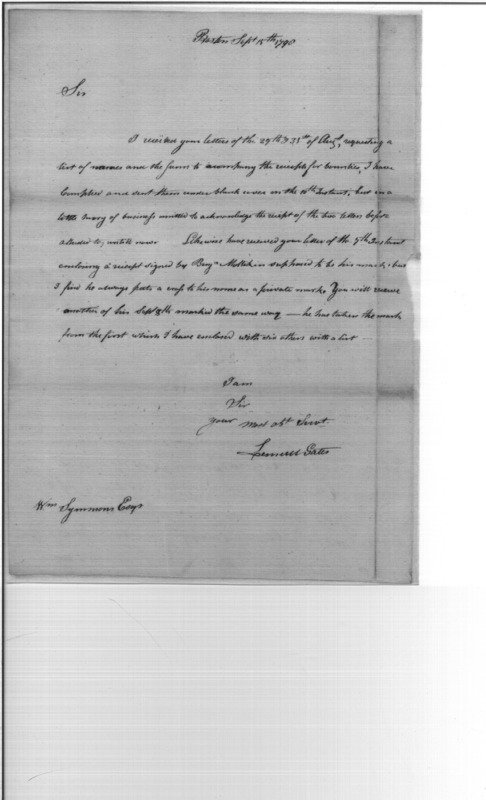 Boston Sept 15th 1798
Sir
I received your letters of the 29th & 31st of Augt, requesting a
list of names and the forms to accompany the receipts for bounties, I have
Complied and sent them under blank cover on the 10th Instant, but in a
hurry of business omitted to acknowledge the receipt of the two letters before
alluded to, untill now Likewise have received your letter of the 7th Instant
enclosing a receipt signed by Benja supposed to be his mark, but
I find he always puts a cross to his name as a private mark, You will receive
another of his Sept 8th marked the same way — he has taken the mark
from the first which I have enclosed with six others with a list
I am
Sir
your most obt Servt.
Lemuel Gates
Wm Symmons Esqr